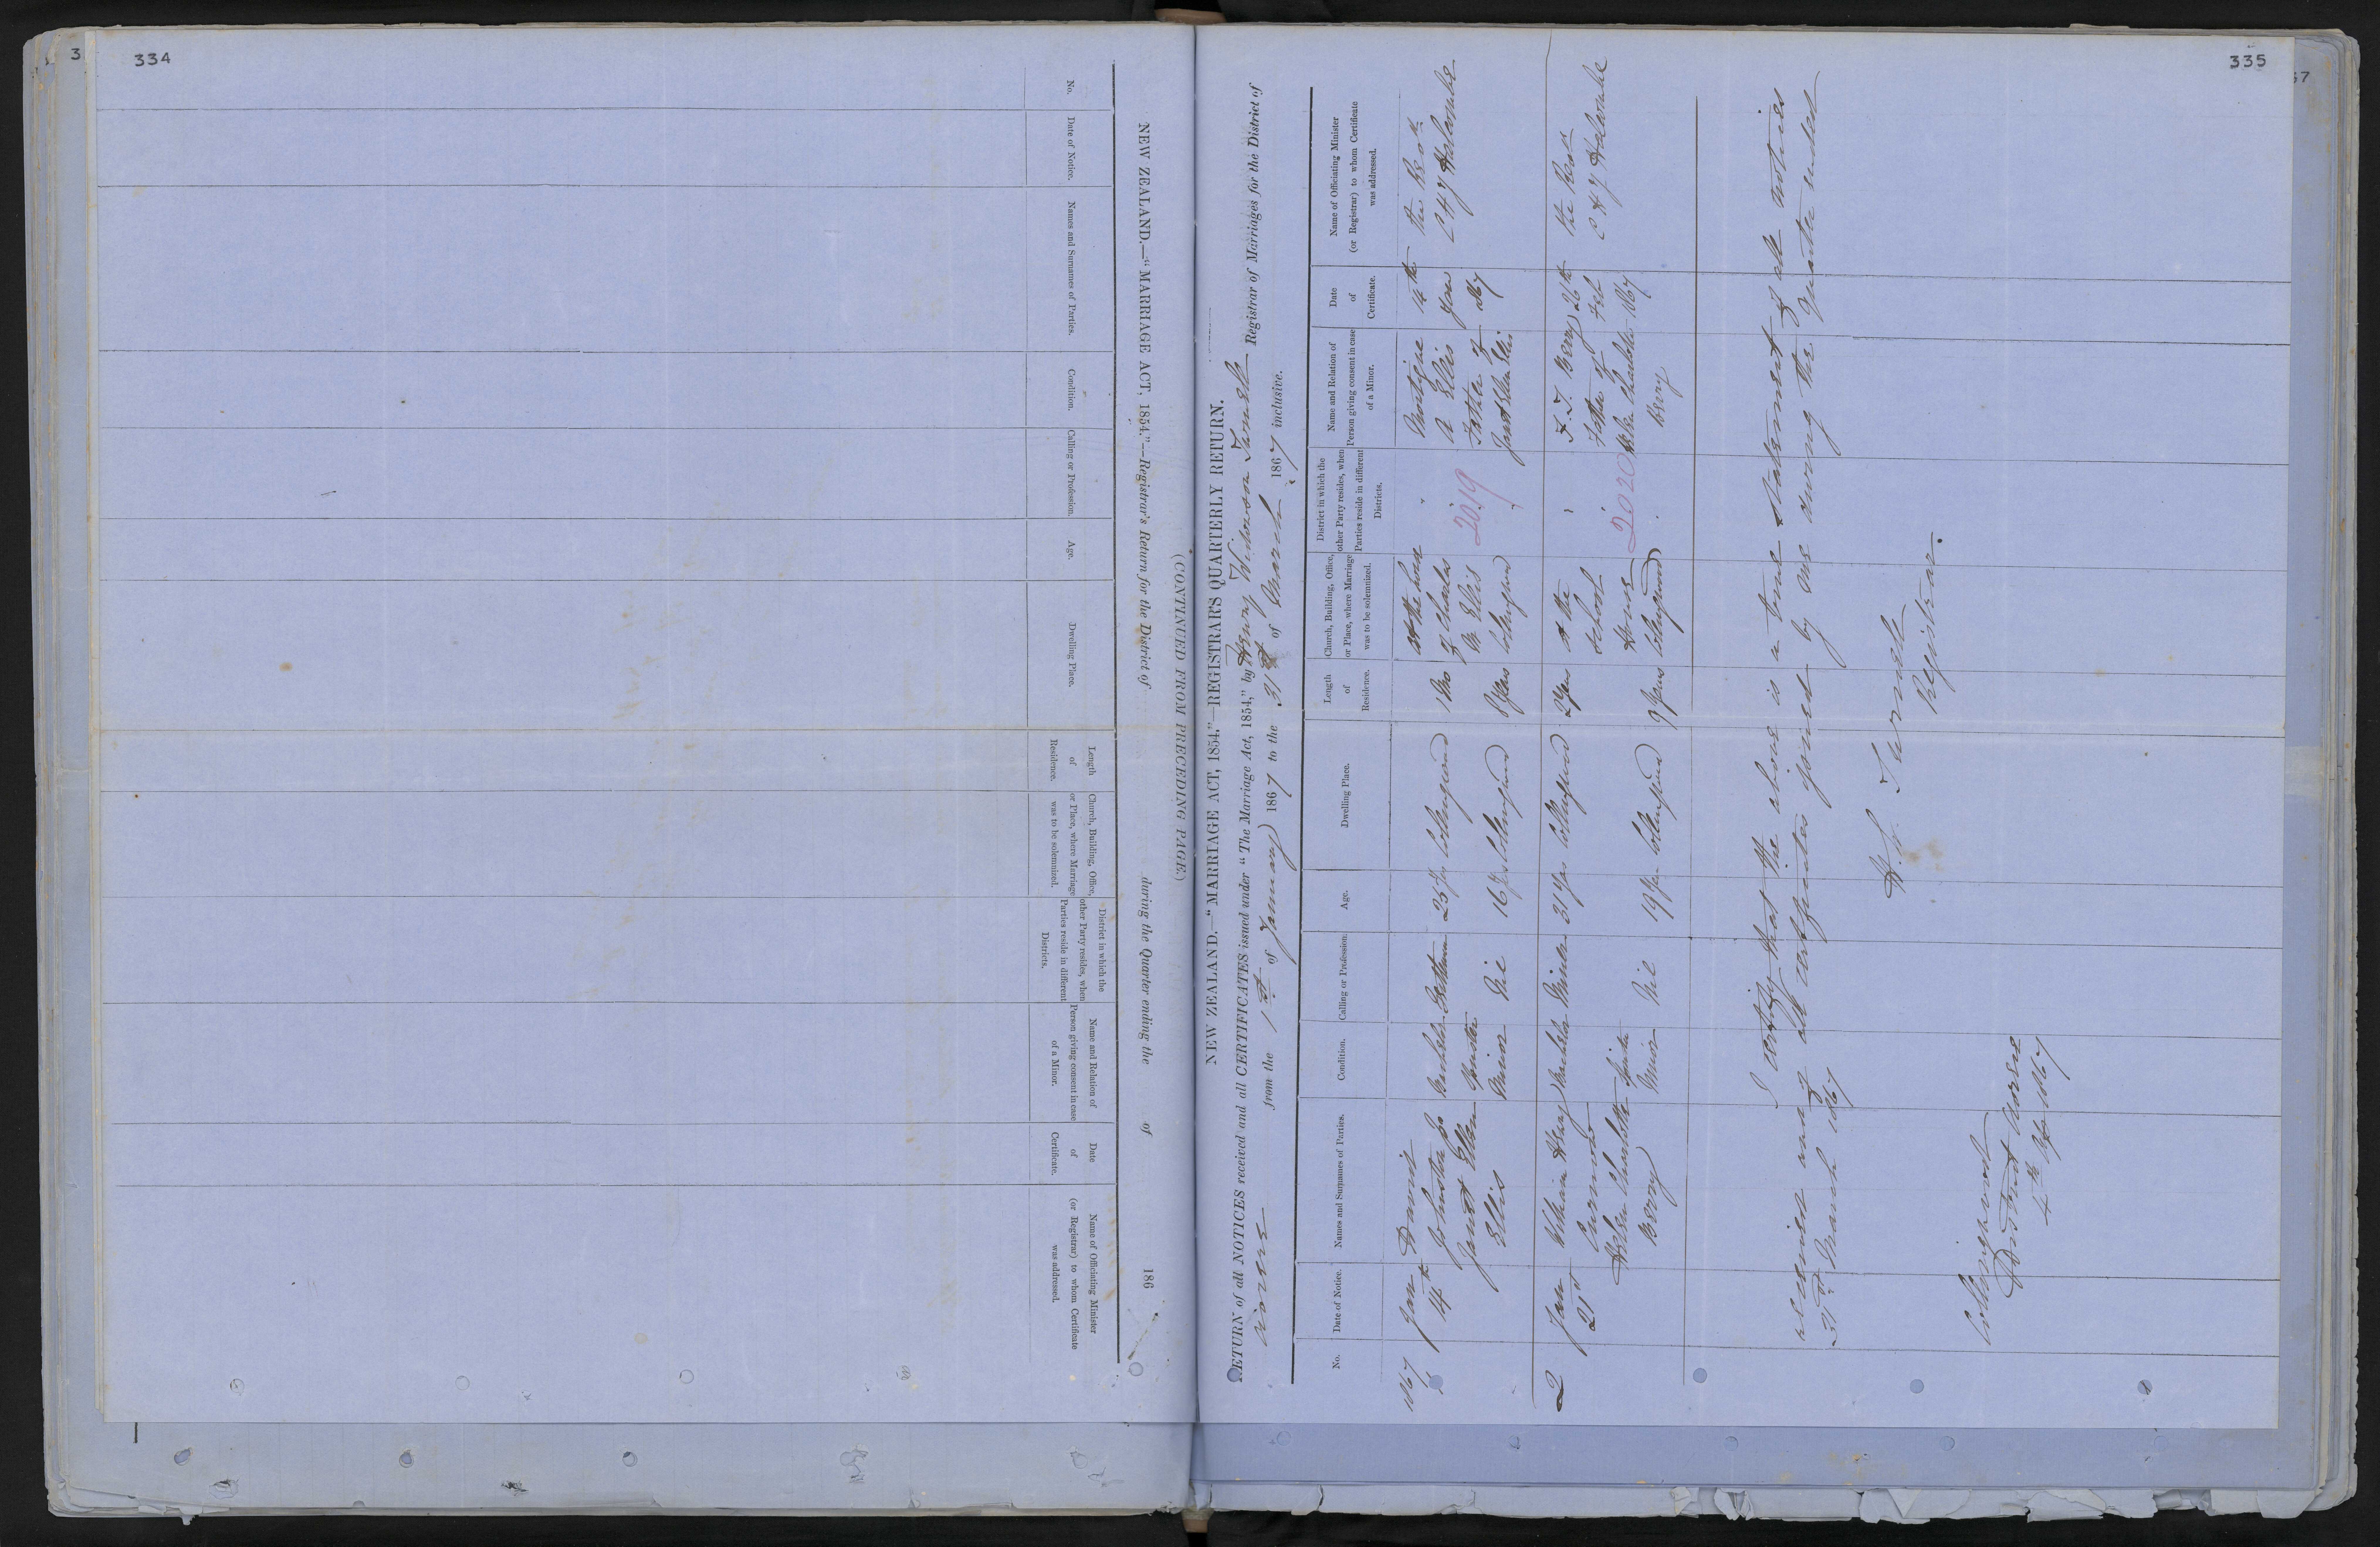 334
NEW ZEALAND.—"MARRIAGE ACT, 1854."—Registrar's Return for the District of during the Quarter ending the of 186
(CONTINUED FROM PRECEDING PAGE.)
No.
Date of Notice.
Names and Surnames of Parties.
Condition.
Calling or Profession.
Age.
Dwelling Place.
Length
of
Residence.
Church, Building, Office,
or Place, where Marriage
was to be solemnized.
District in which the
other Party resides, when
Parties reside in different
Districts.
Name and Relation of
Person giving consent in case
of a Minor.
Date
of
Certificate.
Name of Officiating Minister
(or Registrar) to whom Certificate
was addressed.
335
NEW ZEALAND.—"MARRIAGE ACT, 1854."—REGISTRAR'S QUARTERLY RETURN.
RETURN of all NOTICES received and all CERTIFICATES issued under "The Marriage Act, 1854," by Henry Turnell Registrar of Marriages for the District of
from the 1st of January 1867 to the 31st of March 1867 inclusive.
No.
Date of Notice.
Names and Surnames of Parties.
Condition.
Calling or Profession.
Age.
Dwelling Place.
Length
of
Residence.
Church, Building, Office,
or Place, where Marriage
was to be solemnized.
District in which the
other Party resides, when
Parties reside in different
Districts.
Name and Relation of
Person giving consent in case
of a Minor.
Date
of
Certificate.
Name of Officiating Minister
(or Registrar) to whom Certificate
was addressed.
1867
1
Jan
14th
Johnston
Janet Ellen
Ellis
Bachelor
Spinster
Minor
25 Yrs
16 Yrs
Collingwood
Collingwood
1 Mo
8 Yrs
At the house
of Charles
Ellis
Collingwood
2019
A Ellis
Father of
Janet Ellen Ellis
14th
Jan
1867
the Revd
C H J Halcombe
2
Jan
21st
William Henry
Helen Charlotte
Berry
Bachelor
Spinster
Minor
Miner
Nil
31 Yrs
19 Yrs
Collingwood
Collingwood
2 Yrs
9 Years
At the
School
House
Collingwood
2020
F. J. Berry
Father of
Helen Charlotte
Berry
26th
Feb
1867
the Revd
C H J Halcombe
I certify that the above is a true statement of all notices
received and of all certificates issued by me during the Quarter ended
31st March 1867
H. Turnell
Registrar.
Collingwood
District
4th 1867